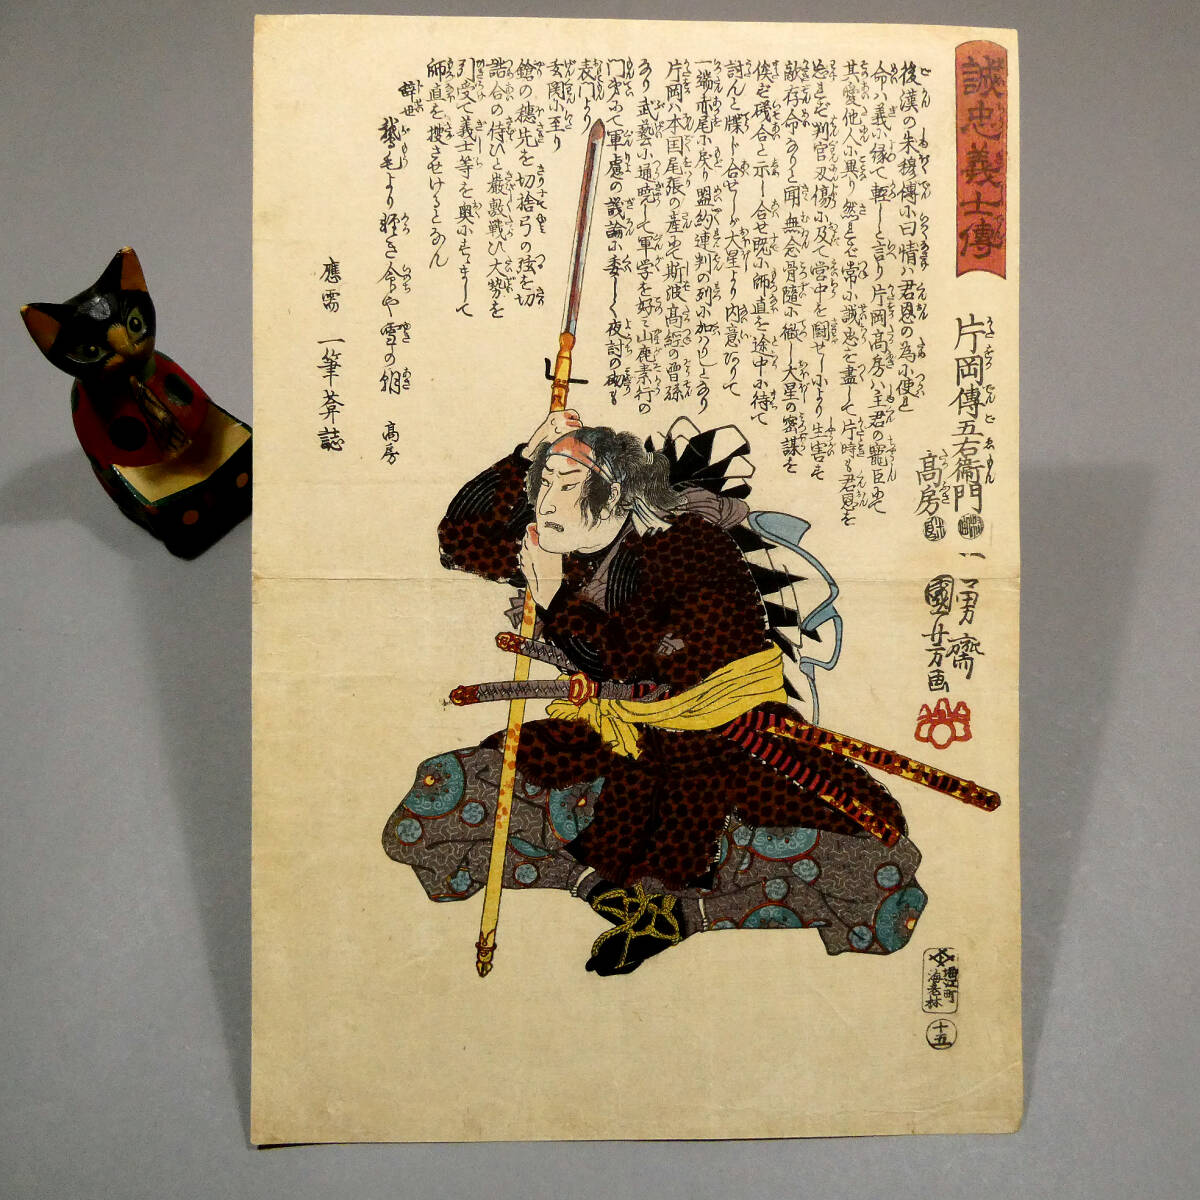 誠忠義士傳
片岡傳五右衛門
高房
後漢の朱穆傳小曰情ハ君恩の為小使ハれ
命ハ義小縁て軽しと言り片岡髙房ハ主君の寵臣にて
其愛他人小異り然るに常小誠忠を盡して片時も君恩を
忘れず判官刃傷小及て營中を閙せし小より生害す
敵存命ありと聞無念骨隨小徹し大星の密謀を
討んと牒じ合せしが大星より内意ありて
一端赤尾小戻り盟約連判の列小加ハりしとなり
片岡ハ本国尾張の産にて斯波高経の曽孫
あり武藝小通暁して軍学を好ミ山鹿素行の
門弟にて軍慮の議論小委しく夜討の砌も
表門より
玄関小至り
鎗の穂先を切捨弓の弦を切
詰合の侍ひと厳敷戦ひ大勢を
引受て義士等を奥小すゝまして
師直を捜させけるとなん
辞世
鵞毛より軽き命や雪の朝
高房
應需
一筆菴誌
一勇齋
國芳画
堀江町
海老林
十五